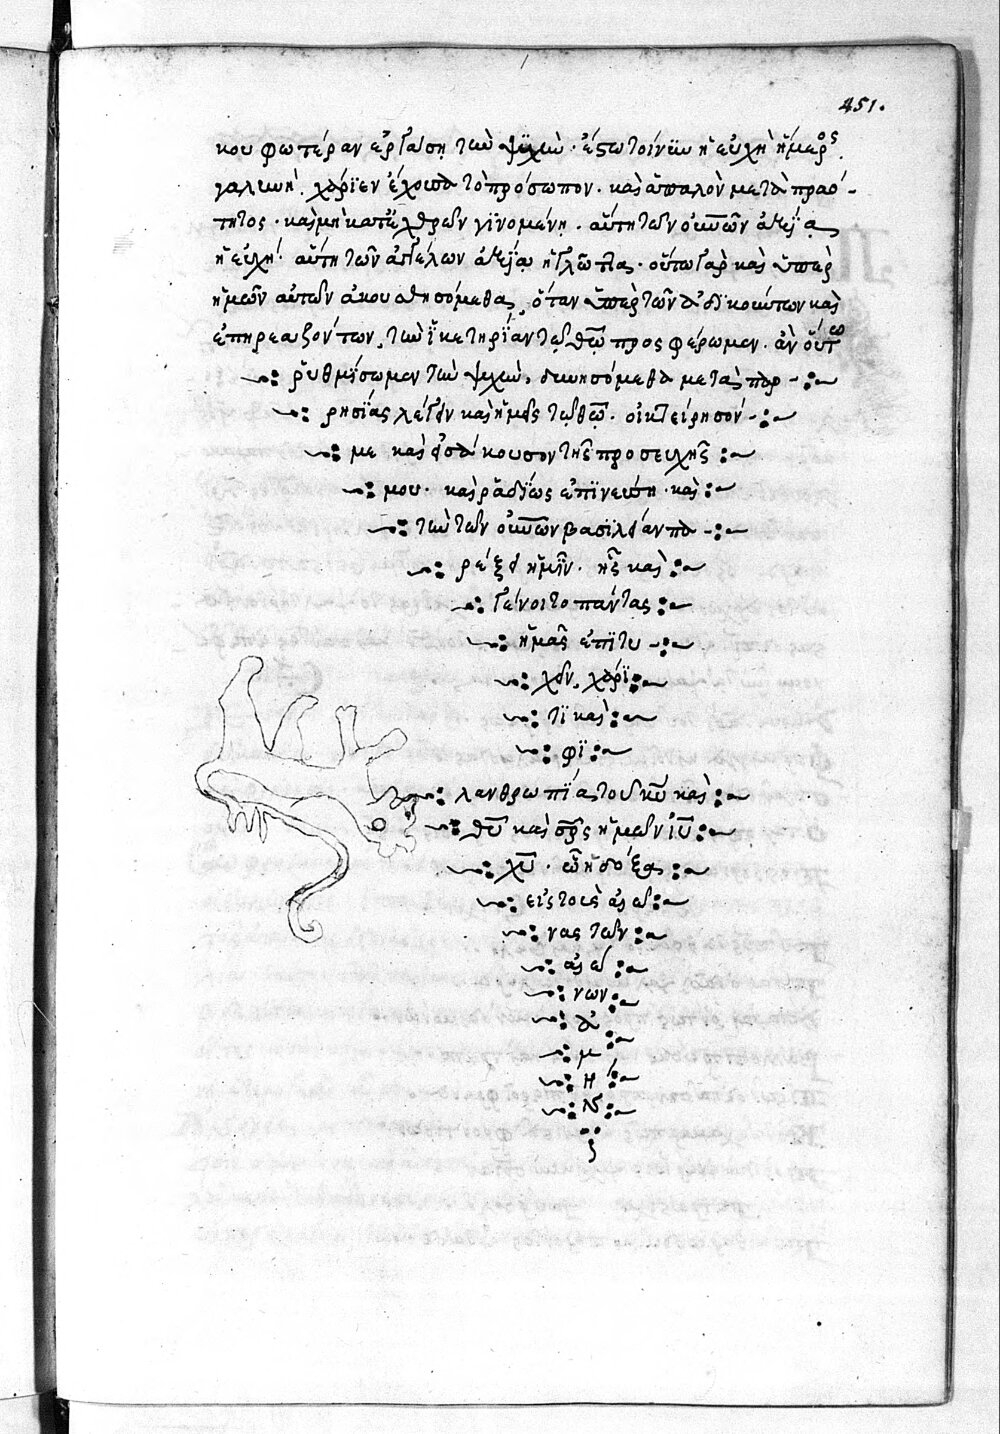 451.
κουφωτέραν ἐργάση τὴν ψϋχὴν · ἔστω τοίνϋν ἡ εὐχὴ ἥμερος,
γαληνὴ. χάρϊεν ἔχουσα τὸ πρόσωπον · καὶ ἁπαλὸν μετὰ πραό-
τητος · καὶ μὴ κατ᾽ ἐχθρῶν γϊνομένη · αὕτη τῶν οὐνῶν ἀξϊα
ἡ εὐχή · αὕτη τῶν ἀγγέλων ἀξϊα ἡ γλῶττα · οὕτω γὰρ καὶ ὑπὲρ
ἡμῶν αὐτῶν ἀκουσθησόμεθα, ὅταν ὑπὲρ τῶν ἀδϊκούντων καὶ
ἐπηρεαζόντων, τὴν ϊκετηρϊαν τῶ θῶ προσφέρωμεν · ἂν οὕτω
ῥυθμϊσωμεν τὴν ψυχὴν, δυνησόμεθα μετὰ παρ-
ρησϊας λέγειν καὶ ἡμεῖς τῶ θῶ · οἰκτείρησόν
με καὶ εἰσάκουσον τῆς προσευχῆς
μου · καὶ ραδϊως ἐπϊνεύση · καὶ
τὴν τῶν οὐνῶν βασϊλείαν πα-
ρέξει ἡμῖν · ἧς καὶ
γένοιτο πάντας
ἡμᾶς ἐπϊτυ-
χεῖν, χάρϊ
τϊ καὶ
φϊ
λανθρωπϊα τοῦ κυ καὶ
θυ καὶ σρς ἡμῶν ιυ
χυ · ὧ ἡ δόξα
εἰς τοὺς αἰῶ
νας τῶν
αἰώ
νων
ἀ
μ
ή
Ν